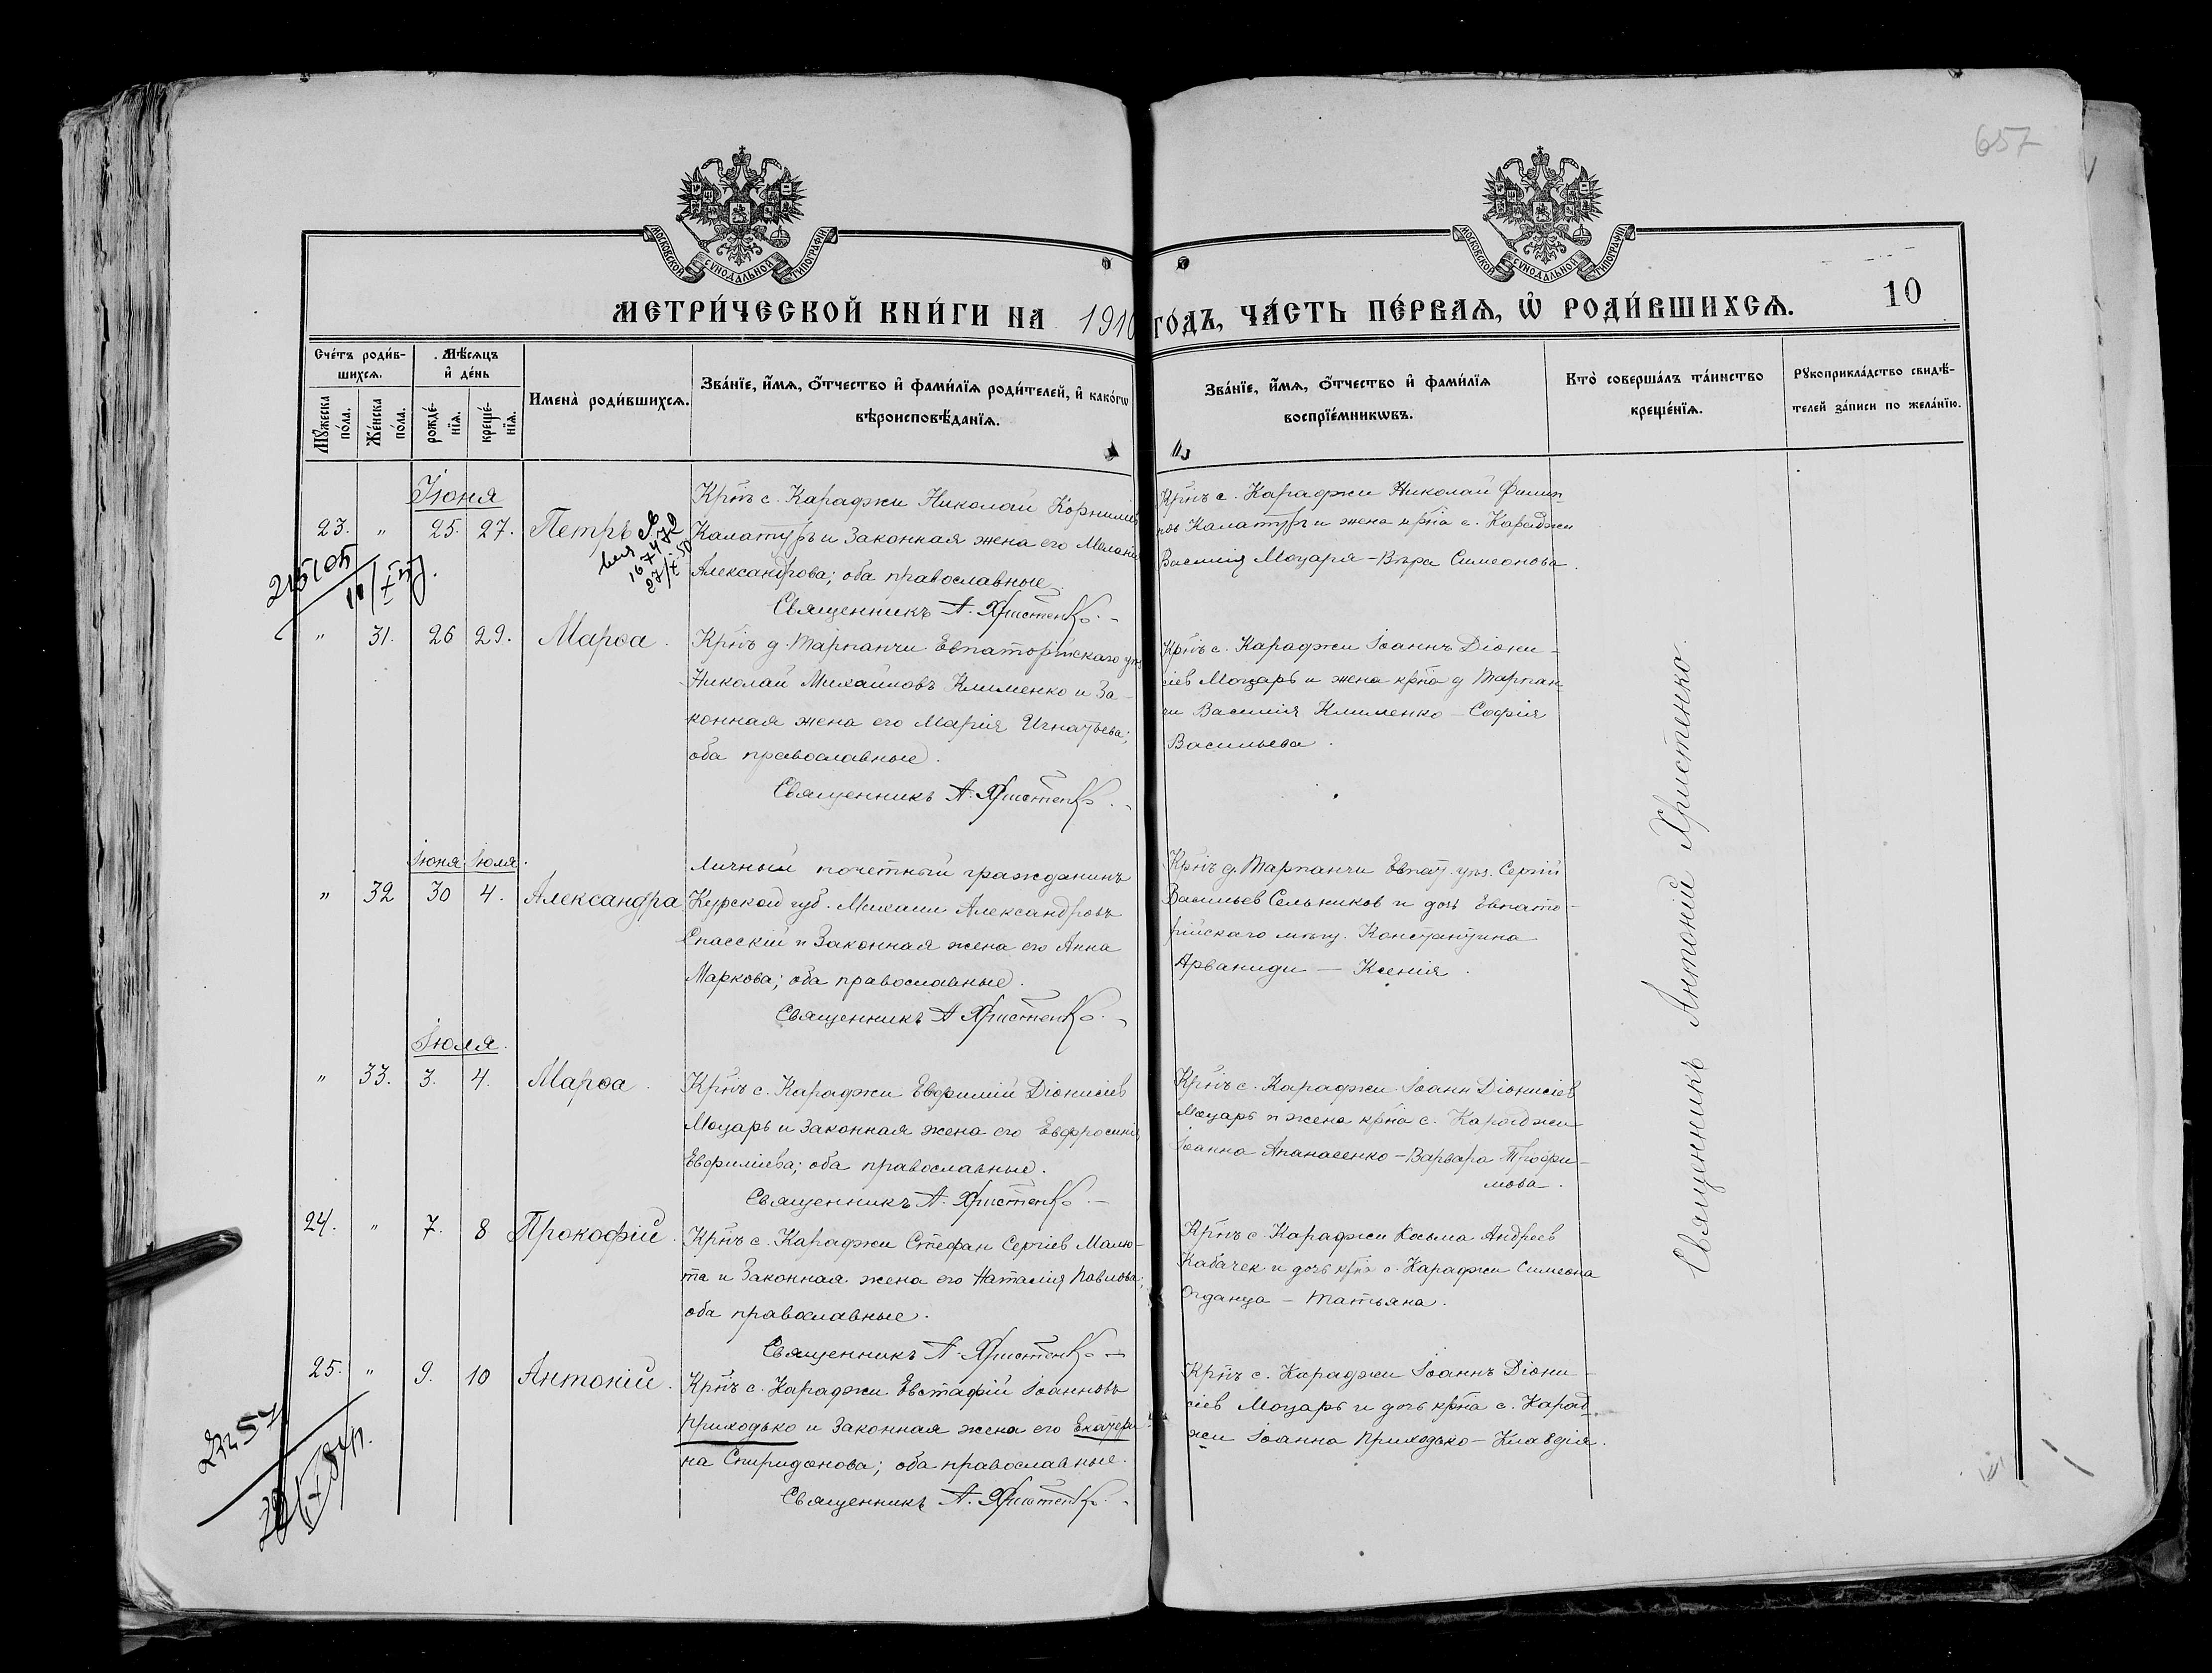 657
МОСКОВСКОЙ СѴНОДАЛЬНОЙ ТИПОГРАФІИ
МОСКОВСКОЙ СѴНОДАЛЬНОЙ ТИПОГРАФІИ
МЕТРИ́ЧЕСКОЙ КНИ́ГИ НА 1910 ГО́ДЪ, ЧА́СТЬ ПЕ́РВАѦ, Ѡ҆ РОДИ́ВШИХСѦ. 10
Сче́тъ роди́в-
шихсѧ.
Мꙋ́жеска по́ла.
Же́нска по́ла.
Мѣ́сѧцъ
и҆ де́нь
рожде́-
нїѧ.
креще́-
нїѧ.
Имена̀ роди́вшихсѧ.
Зва́нїе, и҆́мѧ, ѻ҆́тчество и҆ фами́лїѧ роди́телей, и҆ како́гѡ
вѣроисповѣ́данїѧ.
Зва́нїе, и҆́мѧ, ѻ҆́тчество и҆ фами́лїѧ
воспрїе́мникѡвъ.
Кто̀ соверша́лъ та́инство
креще́нїѧ.
Рꙋкоприкла́дство свидѣ́-
телей за́писи по жела́нїю.
Іюня
23. " 25. 27. Петръ
Крн̃ъ с. Караджи Николай Корнилiев
Калатуръ и законная жена его Меланія
Александрова; оба православные.
Священникъ А. Христенко.
Крн̃ъ с. Караджи Николай Филип-
пов Калатуръ и жена крн̃а с. Караджи
Василія Моцаря - Вѣра Симеонова.
" 31. 26 29. Марѳа.
Крн̃ъ д. Тарпанчи Евпаторійскаго уѣз.
Николай Михайловъ Клименко и за-
конная жена его Марія Игнатьева;
оба православные.
Священникъ А. Христенко.
Крн̃ъ с. Караджи Іоаннъ Діони-
сіев Моцарь и жена крн̃а д. Тарпан-
чи Василія Клименко - Софія
Васильева.
Іюня Іюля.
" 32 30 4. Александра
Личный почетный гражданинъ
Курской губ. Михаил Александровъ
Спасскій и законная жена его Анна
Маркова; оба православные.
Священникъ А. Христенко.
Крн̃ъ д. Тарпанчи Евпат. уѣз. Сергій
Васильев Сельников и дочь Евпато-
рійскаго мѣщ. Константина
Арваниди - Ксенія.
Іюля.
" 33. 3. 4. Марѳа.
Крн̃ъ с. Караджи Евфимій Діонисіев
Моцарь и законная жена его Евфросинія
Евфиміева; оба православные.
Священникъ А. Христенко.
Крн̃ъ с. Караджи Іоанн Діонисіев
Моцарь и жена крн̃а с. Караджи
Іоанна Апанасенко - Варвара Трофи-
мова.
24. " 7. 8 Прокофій.
Крн̃ъ с. Караджи Стефан Сергіев Малю-
та и законная жена его Наталія Павлова;
оба православные.
Священникъ А. Христенко
Крн̃ъ с. Караджи Косьма Андреев
Кабачек и дочь крн̃а с. Караджи Симеона
Огданца - Татьяна.
25. " 9. 10 Антоній.
Крн̃ъ с. Караджи Евстафій Іоанновъ
Приходько и законная жена его Екатери-
на Спиридонова; оба православные.
Священникъ А. Христенко.
Крн̃ъ с. Караджи Іоаннъ Діони-
сіев Моцарь и дочь крн̃а с. Карад-
жи Іоанна Приходько - Клавдія.
Священникъ Антоній Христенко.